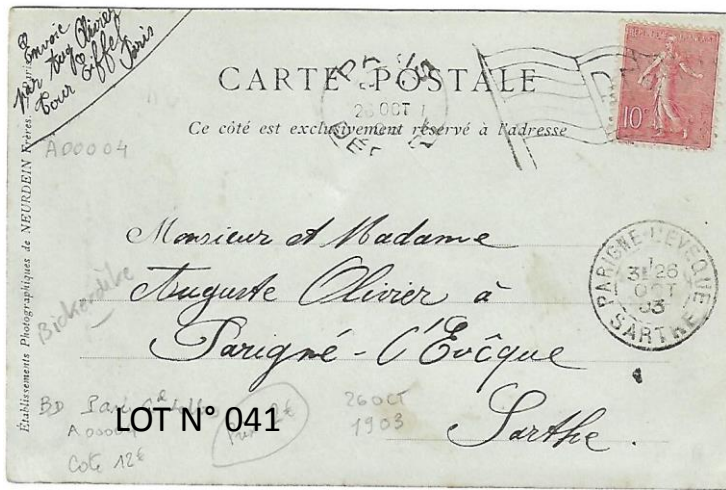 Envoie
par Aug Olivier
Tour Eiffel
Paris
CARTE POSTALE
Ce côté est exclusivement réservé à l'adresse
26 OCT
10
A00004
Établissements Photographiques de NEURDEIN Frères. Paris
Monsieur et Madame
Auguste Olivier à
Parigné-l'Evêque
Sarthe.
PARIGNE-L'EVEQUE
3E 26
OCT
03
SARTHE
BD
LOT N° 041
Cote 12€
2€
26 OCT
1903